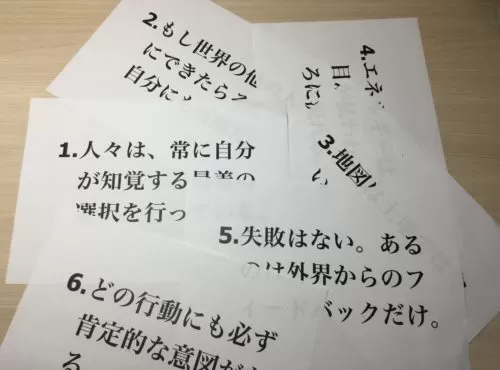 2.もし世界の他
にできたら
自分に
4.エネ
目、
ろに
1.人々は、常に自分
が知覚する最善の
選択を行っ
3.地図
い
5.失敗はない。ある
のは外界からのフ
ィードバックだけ。
6.どの行動にも必ず
肯定的な意図が
る